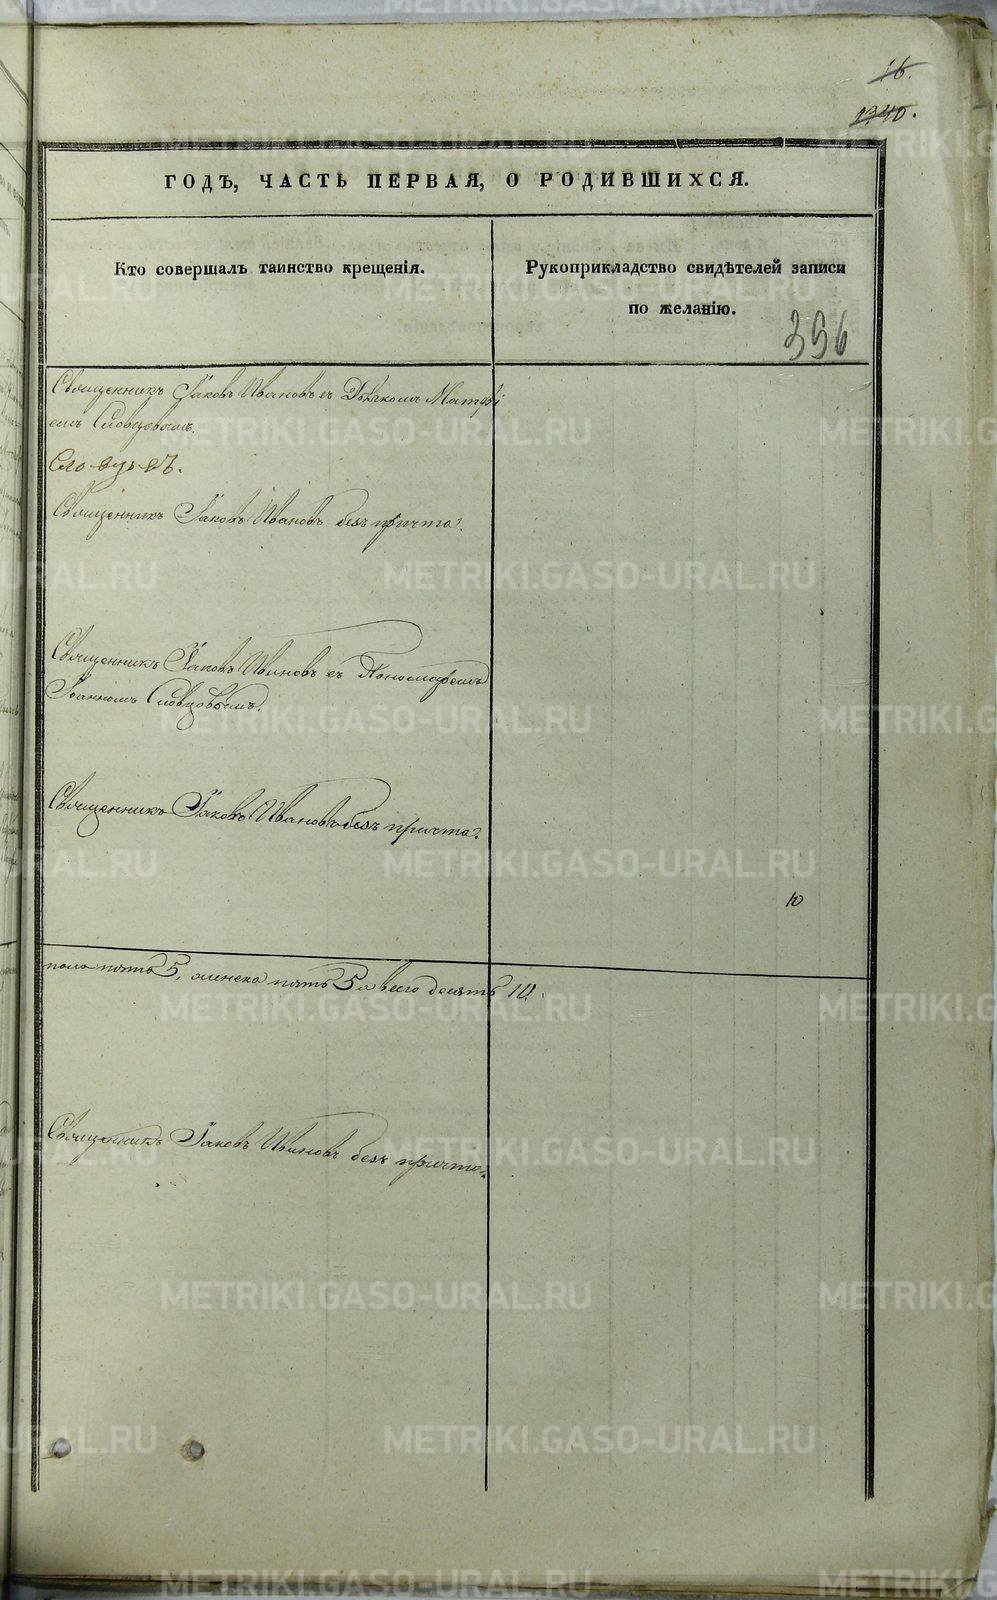 16.
1340.
ГОДЪ, ЧАСТЬ ПЕРВАЯ, О РОДИВШИХСЯ.
Кто совершалъ таинство крещенія.
Рукоприкладство свидѣтелей записи
по желанію.
396
Священникъ Іаковъ Ивановъ съ Дьячкомъ Матѳѣ
емъ Словцовымъ.
Сло-вцо-въ.
Священникъ Іаковъ Ивановъ безъ причта.
Священникъ Іаковъ Ивановъ съ Пономаремъ
Іоанномъ Словцовымъ.
Священникъ Іаковъ Ивановъ безъ причта.
10
пола пять 5, женска пять 5 а всего десять 10.
Священникъ Іаковъ Ивановъ безъ причта.
METRIKI.GASO-URAL.RU